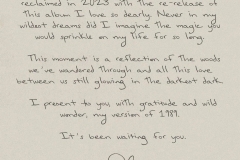 reclaimed in 2023 with the re-release of
this album I love so dearly. Never in my
wildest dreams did I imagine the magic you
would sprinkle on my life for so long.
This moment is a reflection of the woods
we've wandered through and all this love
between us still glowing in the darkest dark.
I present to you with gratitude and wild
wonder, my version of 1989.
It's been waiting for you